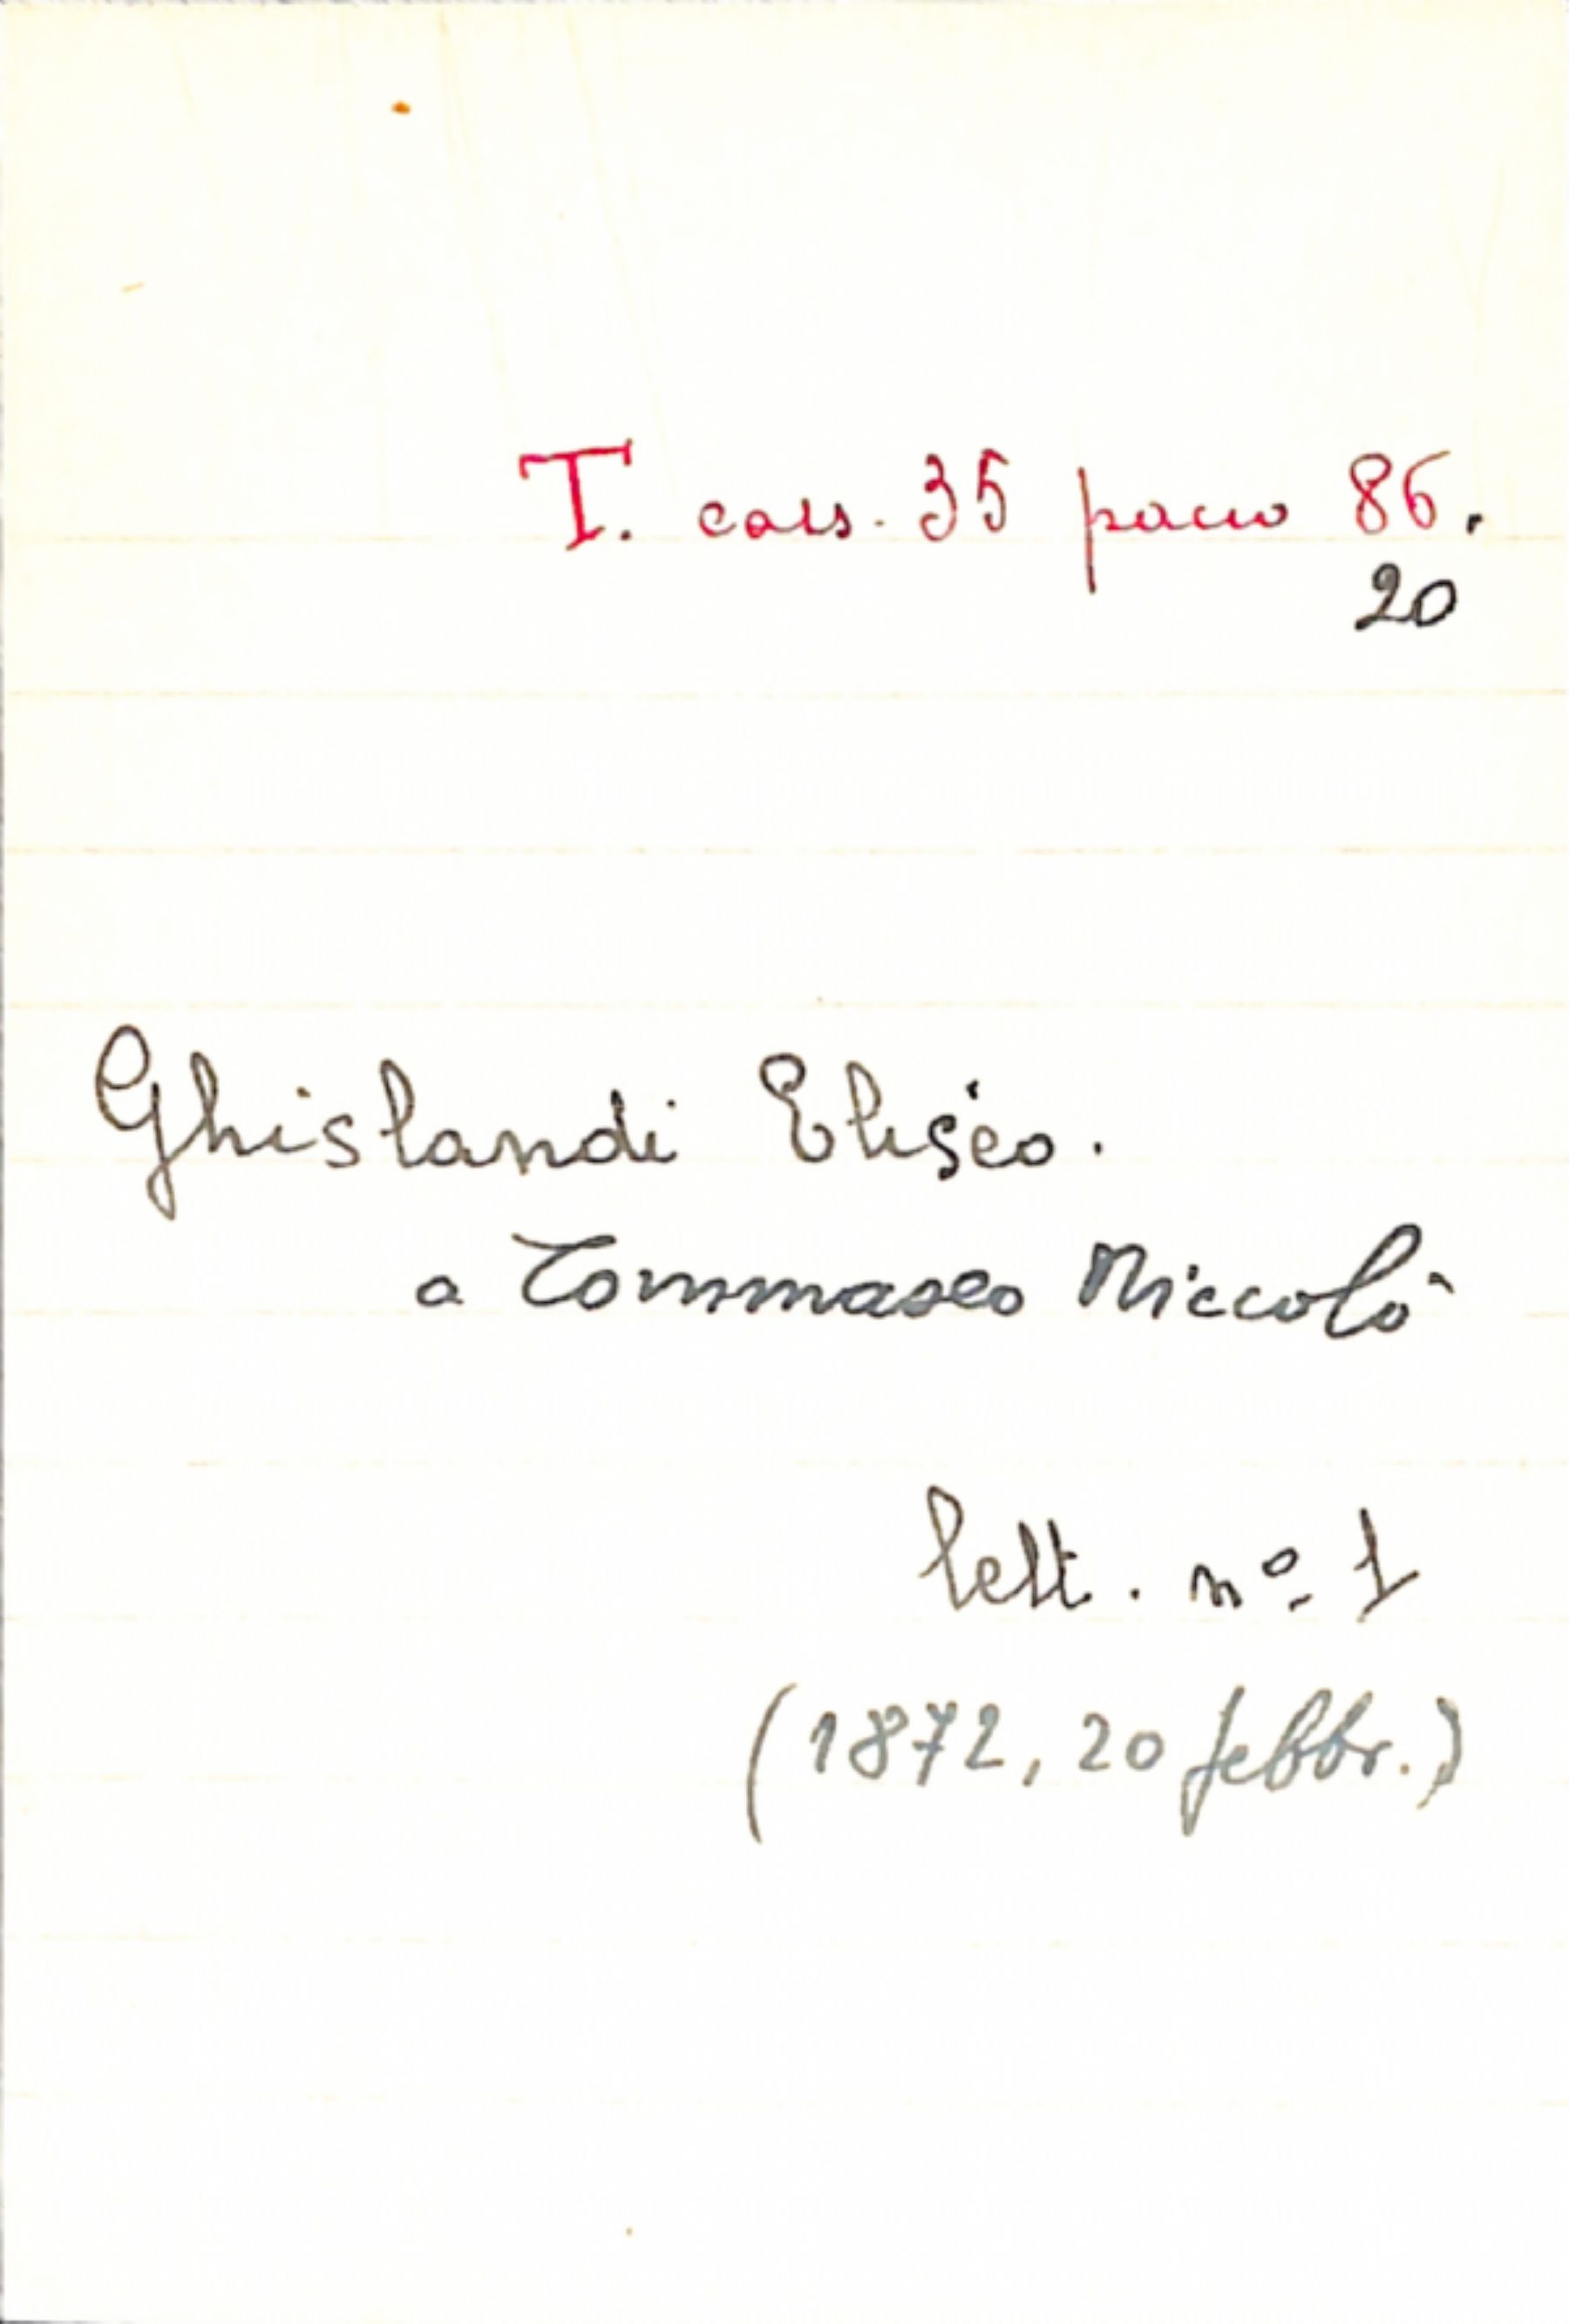 T. cass. 35 pacco 86.
20
Ghislandi Eliseo.
a Tommaseo Niccolò
lett. nº 1
(1872, 20 febbr.)